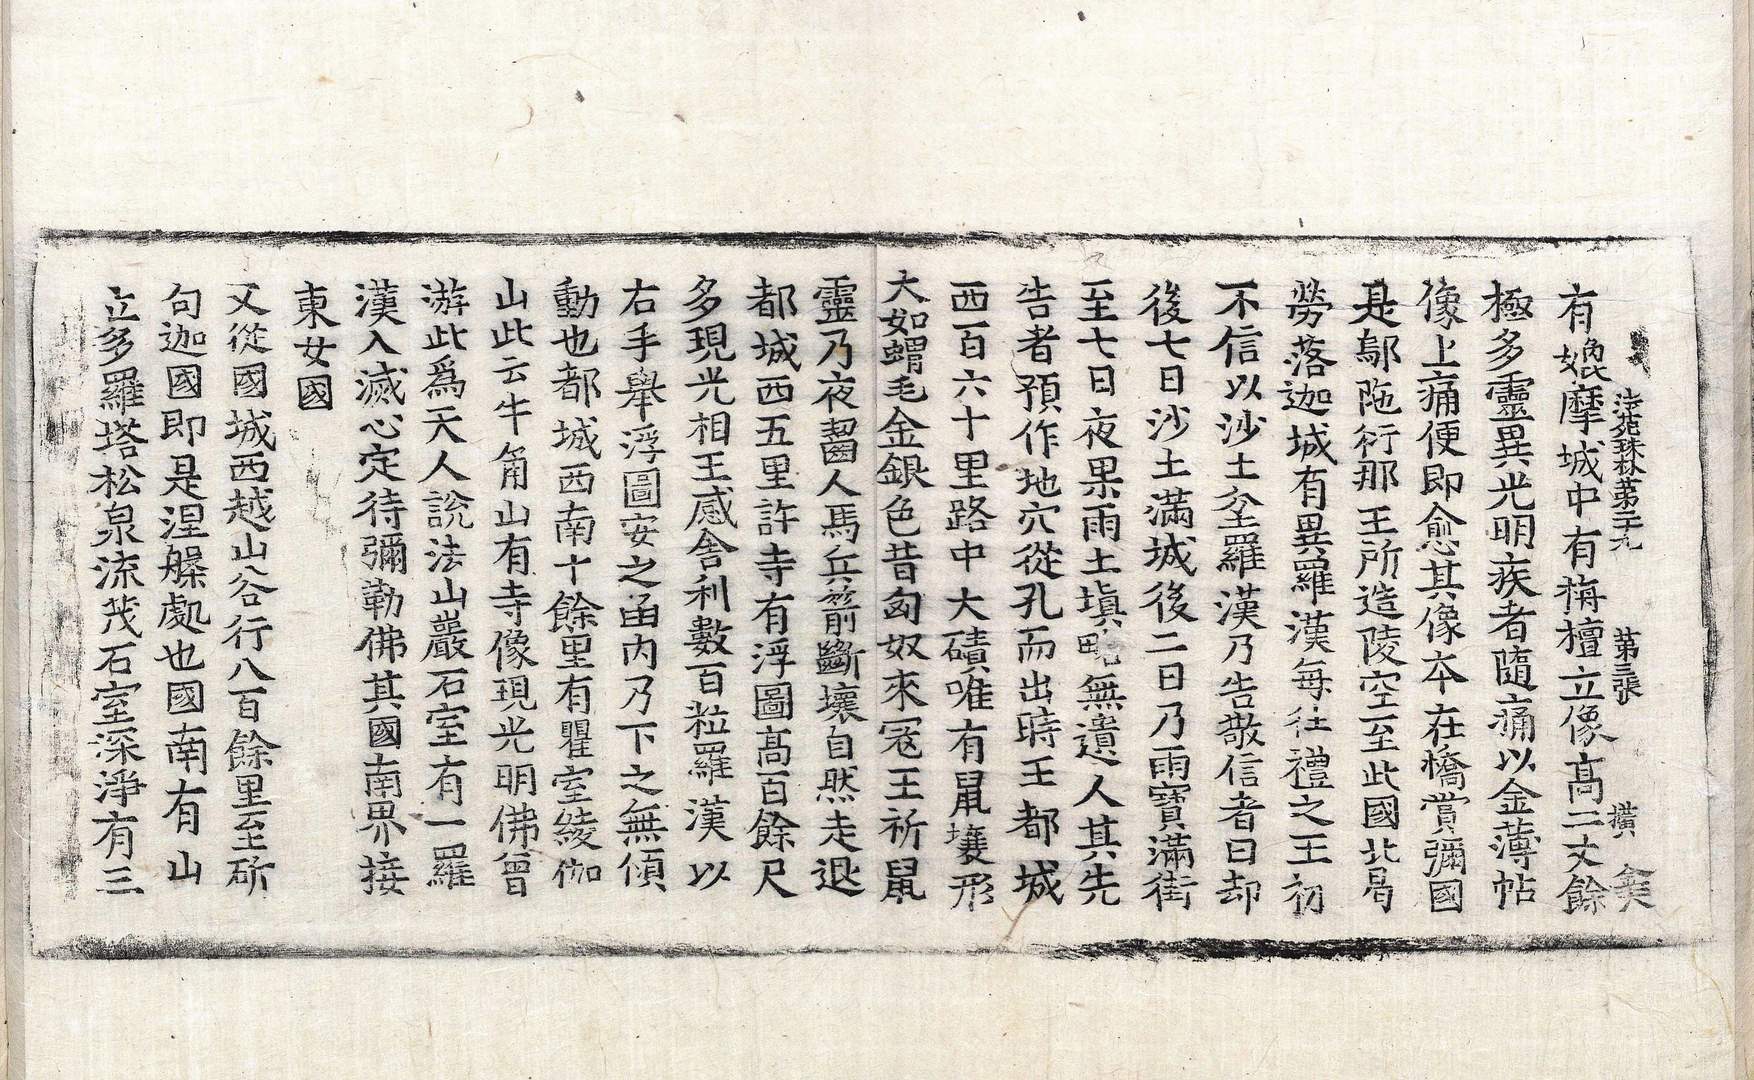 法苑珠林第二十九 第三張 橫 㑹
有媲摩城中有栴檀立像高二丈餘
極多靈異光明疾者隨痛以金薄帖
像上痛便即愈其像本在憍賞彌國
是鄔陁衍那王所造陵空至此國北曷
勞落迦城有異羅漢每往禮之王初
不信以沙土坌羅漢乃告敬信者曰却
後七日沙土滿城後二日乃雨寶滿街
至七日夜果雨土塡略無遺人其先
告者預作地穴從孔而出時王都城
西百六十里路中大磧唯有鼠壤形
大如蝟毛金銀色昔匈奴來寇王祈鼠
靈乃夜齧人馬兵箭斷壞自然走退
都城西五里許寺有浮圖高百餘尺
多現光相王感舍利數百粒羅漢以
右手舉浮圖安之函內乃下之無傾
動也都城西南十餘里有瞿室䔖伽
山此云牛角山有寺像現光明佛曾
游此爲天人說法山巖石室有一羅
漢入滅心定待彌勒佛其國南界接
東女國
又從國城西越山谷行八百餘里至斫
句迦國即是沮𣺌處也國南有山
立多羅塔松泉流茂石室深淨有三